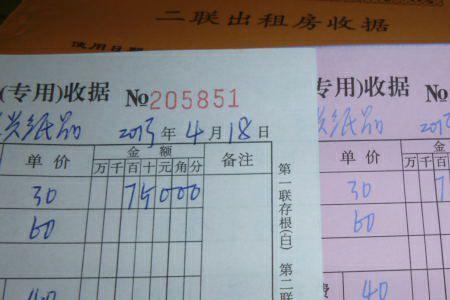 二联出租房收据
使用日期
(专用)收据 №205851
纸品 2013年4月18日
单价 金额 备注
万千百十元角分
30 75000
60
40
第一联存根(白) 第二联
专用)收据 №
纸品 201
单价 金
万千百
30 7
60
费 40